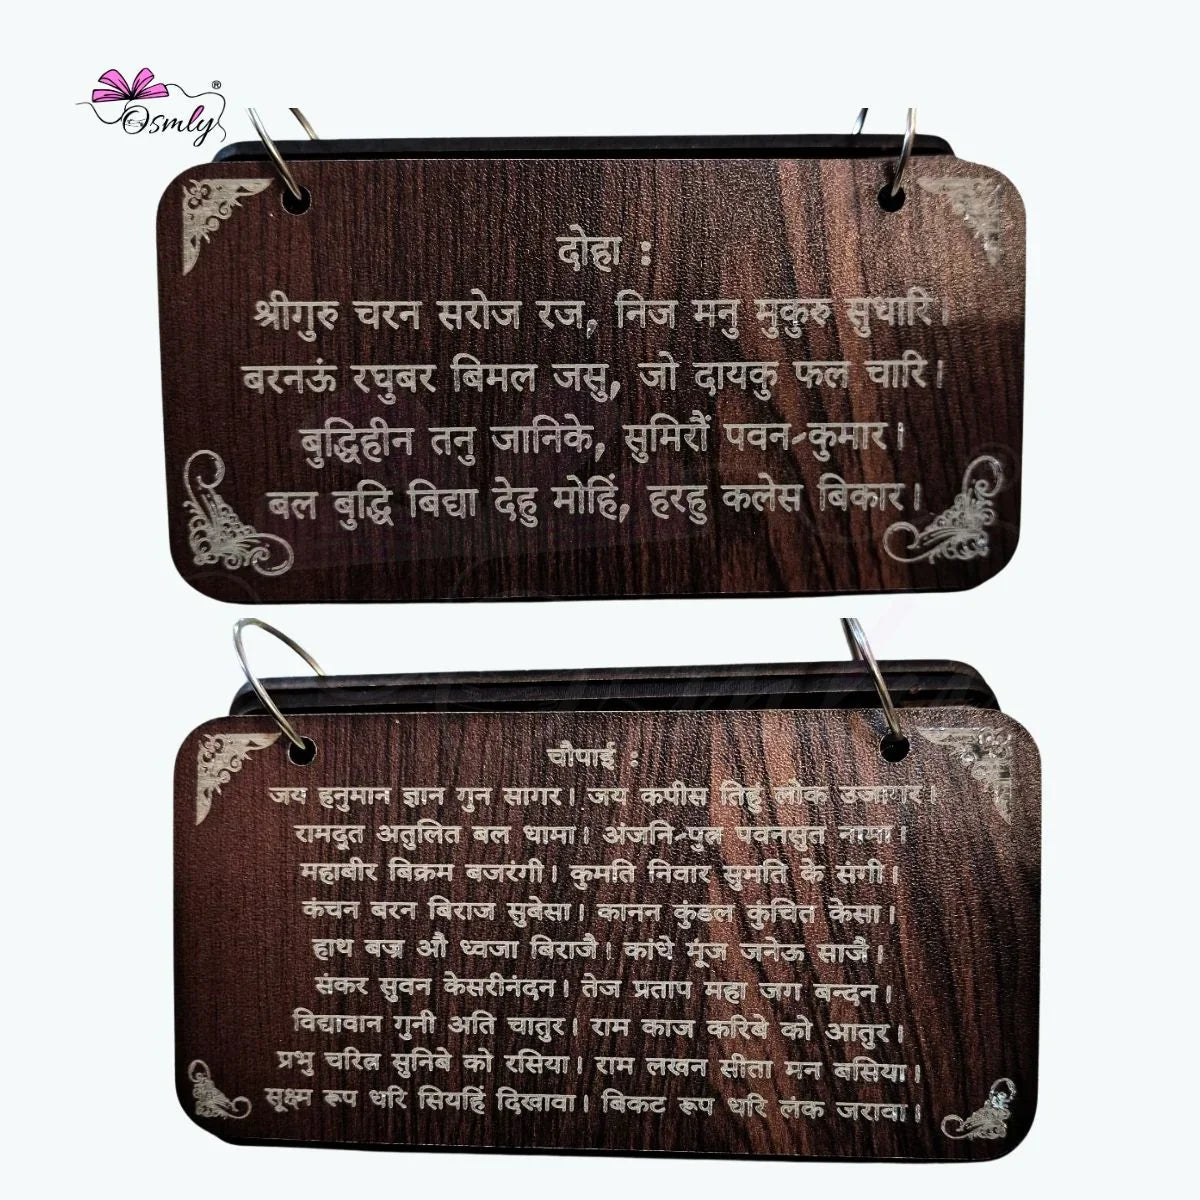 Osmly®
दोहा :
श्रीगुरु चरन सरोज रज, निज मनु मुकुरु सुधारि।
बरनऊं रघुबर बिमल जसु, जो दायकु फल चारि।
बुद्धिहीन तनु जानिके, सुमिरौं पवन-कुमार।
बल बुद्धि बिद्या देहु मोहिं, हरहु कलेस बिकार।
चौपाई :
जय हनुमान ज्ञान गुन सागर। जय कपीस तिहुं लोक उजागर।
रामदूत अतुलित बल धामा। अंजनि-पुत्र पवनसुत नामा।
महाबीर बिक्रम बजरंगी। कुमति निवार सुमति के संगी।
कंचन बरन बिराज सुबेसा। कानन कुंडल कुंचित केसा।
हाथ बज्र औ ध्वजा बिराजै। कांधे मूंज जनेऊ साजै।
संकर सुवन केसरीनंदन। तेज प्रताप महा जग बन्दन।
विद्यावान गुनी अति चातुर। राम काज करिबे को आतुर।
प्रभु चरित्र सुनिबे को रसिया। राम लखन सीता मन बसिया।
सूक्ष्म रूप धरि सियहिं दिखावा। बिकट रूप धरि लंक जरावा।